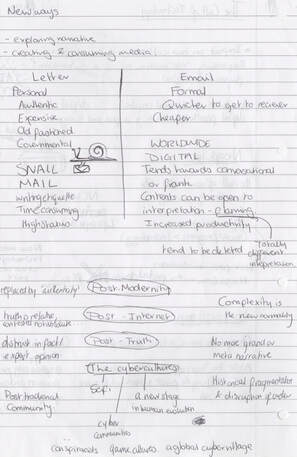 New ways
- exploring narrative
- creating & consuming media
Letter
Personal
Authentic
Expensive
Old fashioned
Governmental
SNAIL
MAIL
writing etiquette
Time consuming
High status
Email
Formal
Quicker to get to reciever
Cheaper
WORLDWIDE
DIGITAL
Tends towards conversational
or frank
Contents can be open to
interpretation - planning
Increased productivity
tend to be deleted
Totally
different
interpretation
replaced by 'authenticity'
Post-Modernity
Complexity is
the new normality
truth is relative,
Post - Internet
distrust in fact/
expert opinion
Post - Truth
No more grand or
meta narrative
The cybercultures
Post traditional
Community.
SciFi
cyber
communities
a new stage
in human evolution
Historical fragmentation
& disruption of order
conspiracists game cultures a global cybervillage